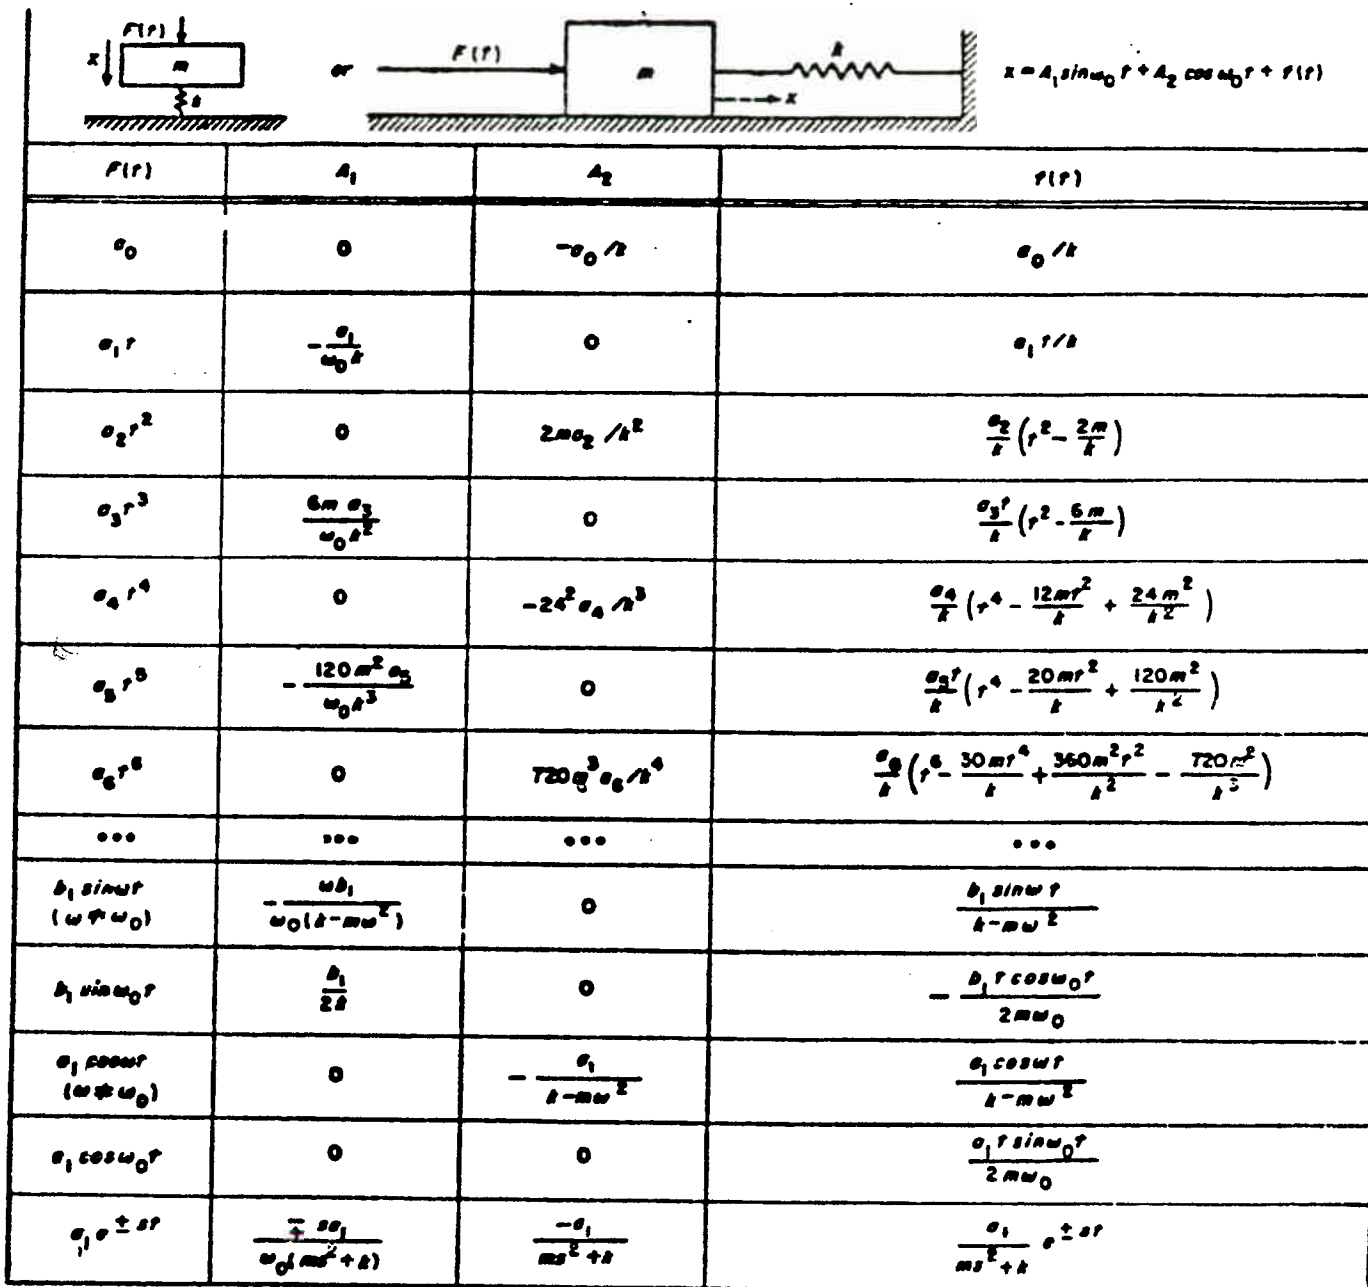 F(t)
x
m
k
or
F(t)
m
k
x
x = A₁ sin ω₀ t + A₂ cos ω₀ t + f(t)
F(t) A₁ A₂ f(t)
a₀ 0 -a₀/k a₀/k
a₁ t -a₁/(ω₀ k) 0 a₁ t/k
a₂ t² 0 2ma₂/k² a₂/k (t² - 2m/k)
a₃ t³ 6m a₃/(ω₀ k²) 0 a₃t/k (t² - 6m/k)
a₄ t⁴ 0 -24² a₄/k³ a₄/k (t⁴ - 12mt²/k + 24m²/k²)
a₅ t⁵ -120m² a₅/(ω₀ k³) 0 a₅t/k (t⁴ - 20mt²/k + 120m²/k²)
a₆ t⁶ 0 720m³ a₆/k⁴ a₆/k (t⁶ - 30mt⁴/k + 360m²t²/k² - 720m²/k³)
••• ••• ••• •••
b₁ sin ωt (ω ≠ ω₀) -ωb₁/(ω₀(k-mω²)) 0 b₁ sin ω t/(k-mω²)
b₁ sin ω₀t b₁/2k 0 - b₁ t cos ω₀t/(2mω₀)
a₁ cos ωt (ω ≠ ω₀) 0 -a₁/(k-mω²) a₁ cos ωt/(k-mω²)
a₁ cos ω₀t 0 0 a₁ t sin ω₀t/(2mω₀)
a₁ e^(± st) ∓ sa₁/(ω₀(ms²+k)) -a₁/(ms²+k) a₁/(ms²+k) e^(± st)